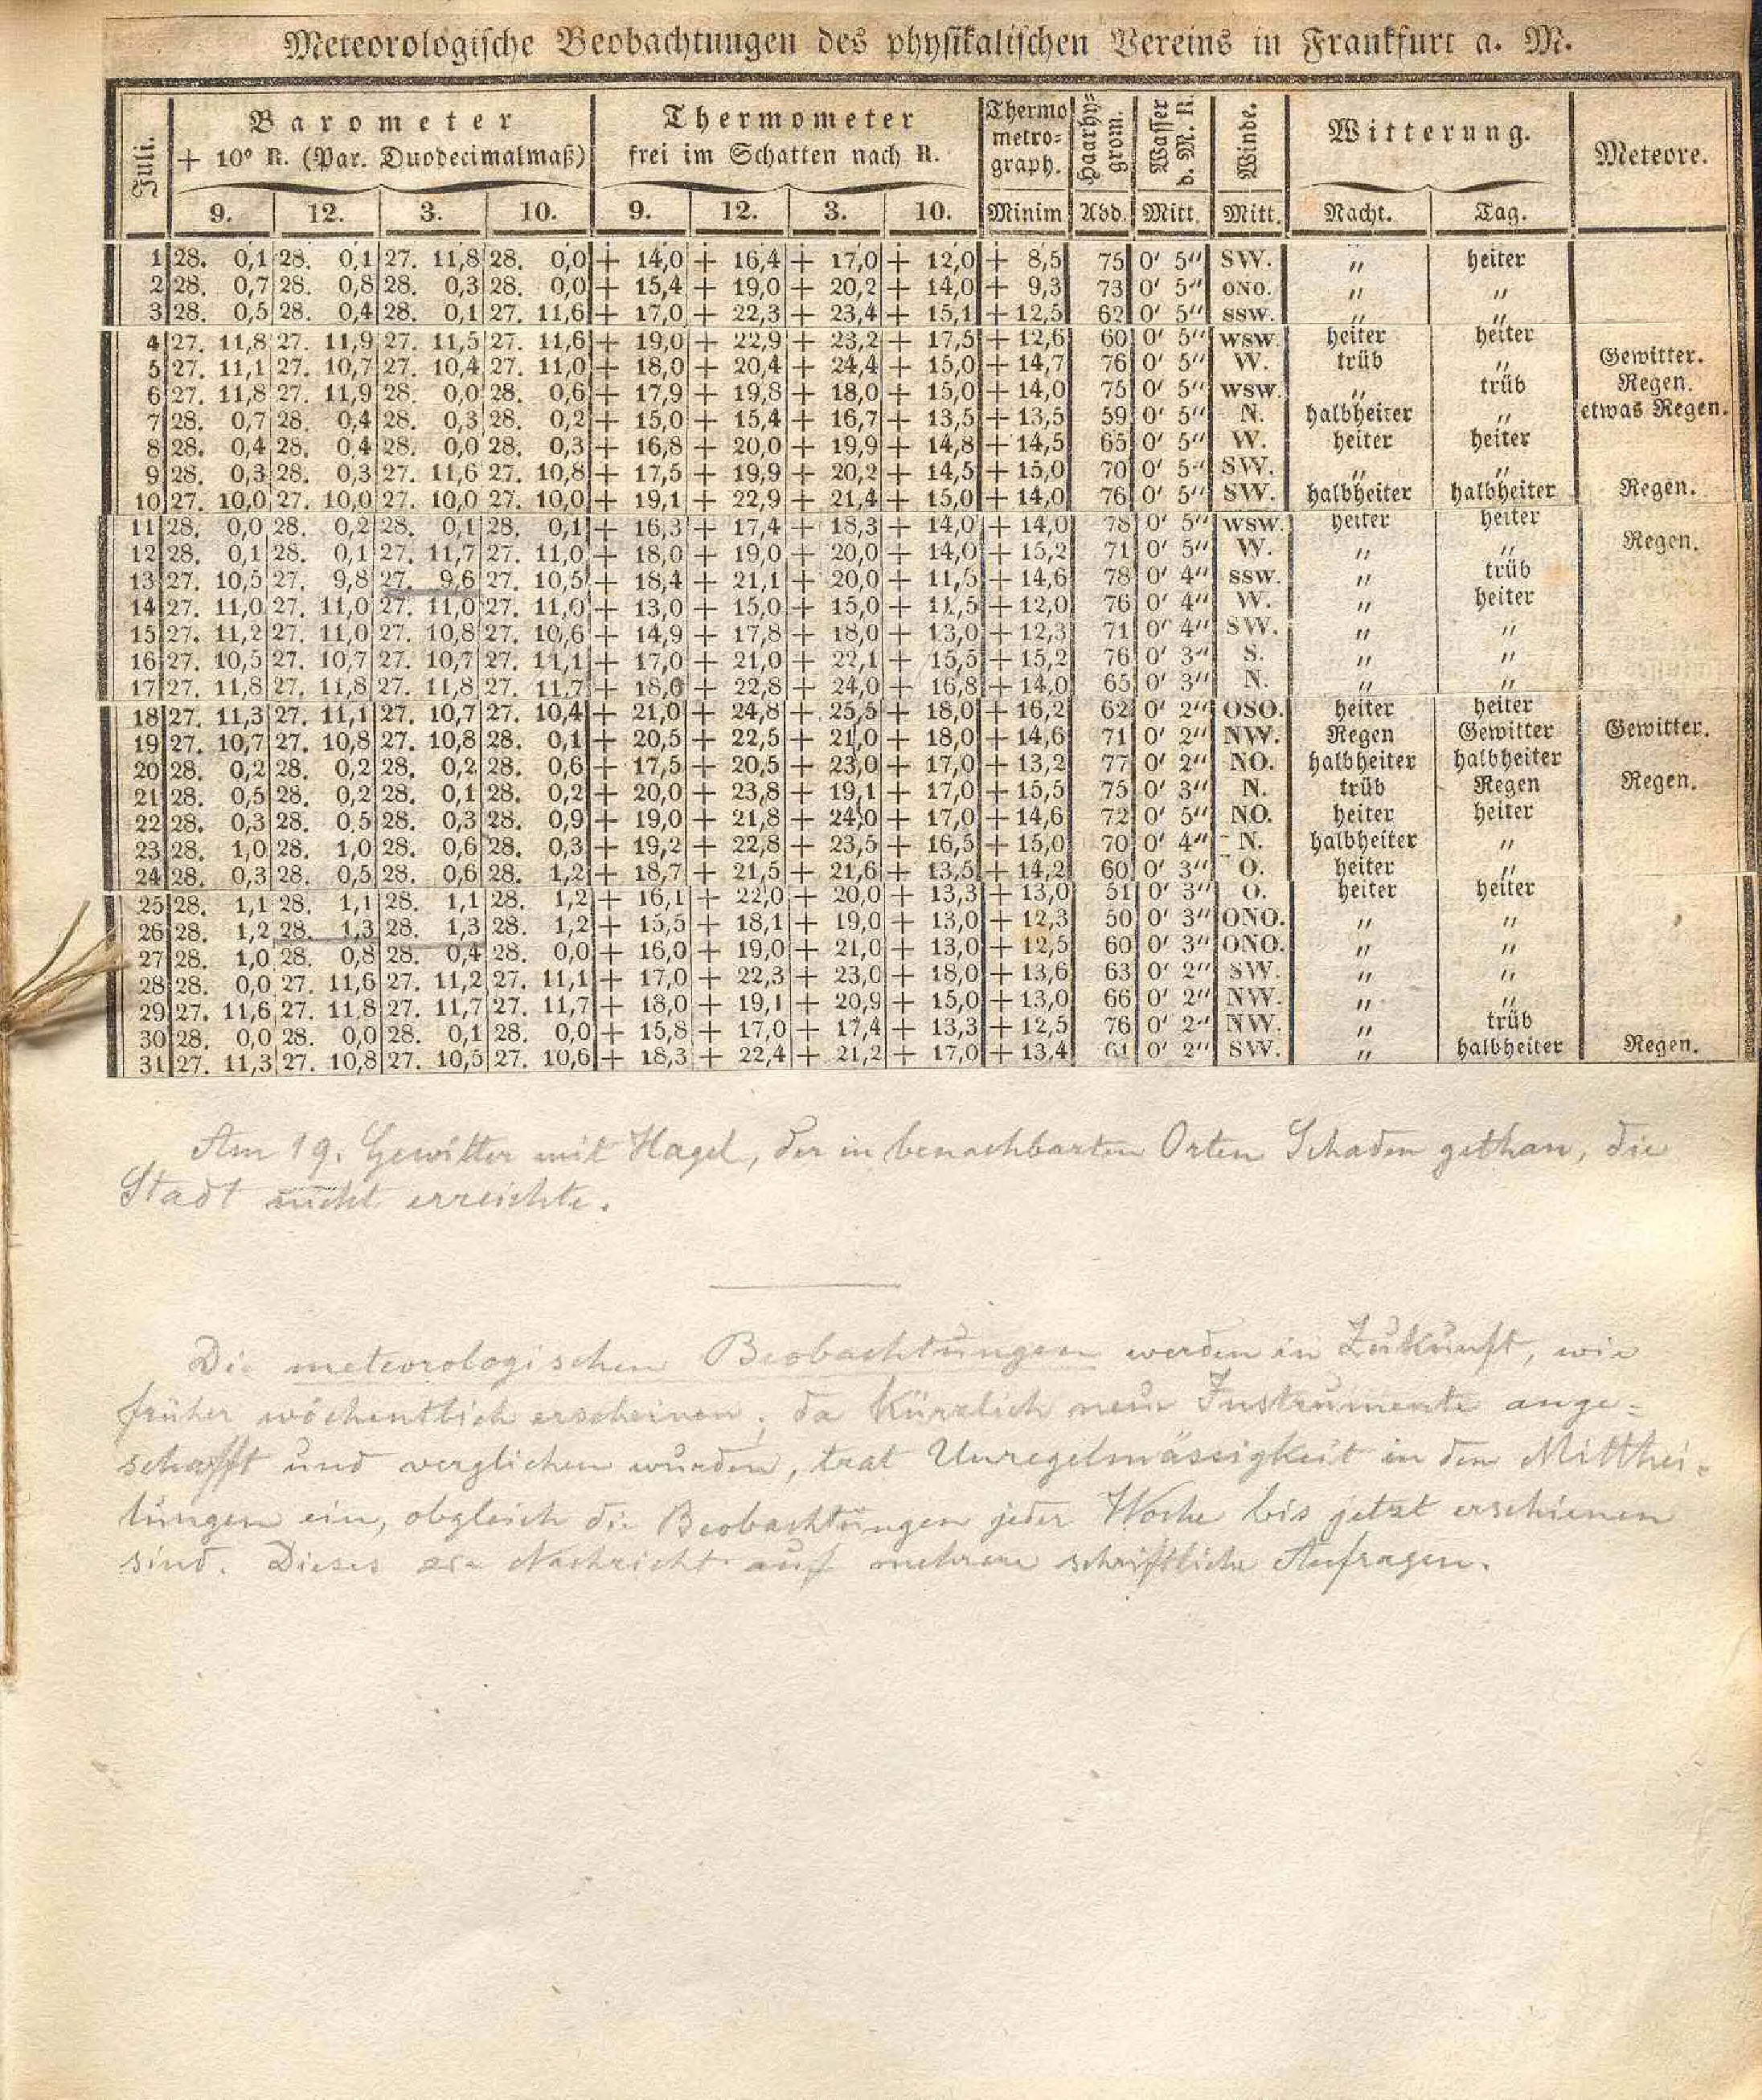 Meteorologische Beobachtungen des physikalischen Vereins in Frankfurt a. M.
Juli. Barometer + 10° R. (Par. Duodecimalmaß) Thermometer frei im Schatten nach R. Thermometrograph. Haarhygrom. Wasser d. M. N. Winde. Witterung. Meteore.
9. 12. 3. 10. 9. 12. 3. 10. Minim Abd. Mitt. Mitt. Nacht. Tag.
1 28. 0,1 28. 0,1 27. 11,8 28. 0,0 + 14,0 + 16,4 + 17,0 + 12,0 + 8,5 75 0' 5" SW. " heiter
2 28. 0,7 28. 0,8 28. 0,3 28. 0,0 + 15,4 + 19,0 + 20,2 + 14,0 + 9,3 73 0' 5" ONO. " "
3 28. 0,5 28. 0,4 28. 0,1 27. 11,6 + 17,0 + 22,3 + 23,4 + 15,1 + 12,5 62 0' 5" SSW. " "
4 27. 11,8 27. 11,9 27. 11,5 27. 11,6 + 19,0 + 22,9 + 23,2 + 17,5 + 12,6 60 0' 5" WSW. heiter heiter
5 27. 11,1 27. 10,7 27. 10,4 27. 11,0 + 18,0 + 20,4 + 24,4 + 15,0 + 14,7 76 0' 5" W. trüb " Gewitter.
6 27. 11,8 27. 11,9 28. 0,0 28. 0,6 + 17,9 + 19,8 + 18,0 + 15,0 + 14,0 75 0' 5" WSW. " trüb Regen.
7 28. 0,7 28. 0,4 28. 0,3 28. 0,2 + 15,0 + 15,4 + 16,7 + 13,5 + 13,5 59 0' 5" N. halbheiter " etwas Regen.
8 28. 0,4 28. 0,4 28. 0,0 28. 0,3 + 16,8 + 20,0 + 19,9 + 14,8 + 14,5 65 0' 5" W. heiter heiter
9 28. 0,3 28. 0,3 27. 11,6 27. 10,8 + 17,5 + 19,9 + 20,2 + 14,5 + 15,0 70 0' 5" SW. " "
10 27. 10,0 27. 10,0 27. 10,0 27. 10,0 + 19,1 + 22,9 + 21,4 + 15,0 + 14,0 76 0' 5" SW. halbheiter halbheiter Regen.
11 28. 0,0 28. 0,2 28. 0,1 28. 0,1 + 16,3 + 17,4 + 18,3 + 14,0 + 14,0 78 0' 5" WSW. heiter heiter
12 28. 0,1 28. 0,1 27. 11,7 27. 11,0 + 18,0 + 19,0 + 20,0 + 14,0 + 15,2 71 0' 5" W. " " Regen.
13 27. 10,5 27. 9,8 27. 9,6 27. 10,5 + 18,4 + 21,1 + 20,0 + 11,5 + 14,6 78 0' 4" SSW. " trüb
14 27. 11,0 27. 11,0 27. 11,0 27. 11,0 + 13,0 + 15,0 + 15,0 + 11,5 + 12,0 76 0' 4" W. " heiter
15 27. 11,2 27. 11,0 27. 10,8 27. 10,6 + 14,9 + 17,8 + 18,0 + 13,0 + 12,3 71 0' 4" SW. " "
16 27. 10,5 27. 10,7 27. 10,7 27. 11,1 + 17,0 + 21,0 + 22,1 + 15,5 + 15,2 76 0' 3" S. " "
17 27. 11,8 27. 11,8 27. 11,8 27. 11,7 + 18,6 + 22,8 + 24,0 + 16,8 + 14,0 65 0' 3" N. " "
18 27. 11,3 27. 11,1 27. 10,7 27. 10,4 + 21,0 + 24,8 + 25,5 + 18,0 + 16,2 62 0' 2" OSO. heiter heiter
19 27. 10,7 27. 10,8 27. 10,8 28. 0,1 + 20,5 + 22,5 + 21,0 + 18,0 + 14,6 71 0' 2" NW. Regen Gewitter Gewitter.
20 28. 0,2 28. 0,2 28. 0,2 28. 0,6 + 17,5 + 20,5 + 23,0 + 17,0 + 13,2 77 0' 2" NO. halbheiter halbheiter
21 28. 0,5 28. 0,2 28. 0,1 28. 0,2 + 20,0 + 23,8 + 19,1 + 17,0 + 15,5 75 0' 3" N. trüb Regen Regen.
22 28. 0,3 28. 0,5 28. 0,3 28. 0,9 + 19,0 + 21,8 + 24,0 + 17,0 + 14,6 72 0' 5" NO. heiter heiter
23 28. 1,0 28. 1,0 28. 0,6 28. 0,3 + 19,2 + 22,8 + 23,5 + 16,5 + 15,0 70 0' 4" N. halbheiter "
24 28. 0,3 28. 0,5 28. 0,6 28. 1,2 + 18,7 + 21,5 + 21,6 + 13,5 + 14,2 60 0' 3" O. heiter "
25 28. 1,1 28. 1,1 28. 1,1 28. 1,2 + 16,1 + 22,0 + 20,0 + 13,3 + 13,0 51 0' 3" O. heiter heiter
26 28. 1,2 28. 1,3 28. 1,3 28. 1,2 + 15,5 + 18,1 + 19,0 + 13,0 + 12,3 50 0' 3" ONO. " "
27 28. 1,0 28. 0,8 28. 0,4 28. 0,0 + 16,0 + 19,0 + 21,0 + 13,0 + 12,5 60 0' 3" ONO. " "
28 28. 0,0 27. 11,6 27. 11,2 27. 11,1 + 17,0 + 22,3 + 23,0 + 18,0 + 13,6 63 0' 2" SW. " "
29 27. 11,6 27. 11,8 27. 11,7 27. 11,7 + 18,0 + 19,1 + 20,9 + 15,0 + 13,0 66 0' 2" NW. " "
30 28. 0,0 28. 0,0 28. 0,1 28. 0,0 + 15,8 + 17,0 + 17,4 + 13,3 + 12,5 76 0' 2" NW. " trüb
31 27. 11,3 27. 10,8 27. 10,5 27. 10,6 + 18,3 + 22,4 + 21,2 + 17,0 + 13,4 61 0' 2" SW. " halbheiter Regen.
Am 19. Gewitter mit Hagel, der in benachbarten Orten Schaden gethan, die
Stadt nicht erreichte.
Die meteorologischen Beobachtungen werden in Zukunft, wie
früher wöchentlich erscheinen; da kürzlich neue Instrumente ange=
schafft und verglichen wurden, trat Unregelmässigkeit in den Mitthei=
lungen ein, obgleich die Beobachtungen jeder Woche bis jetzt erschienen
sind. Dieses zur Nachricht auf mehrere schriftliche Anfragen.